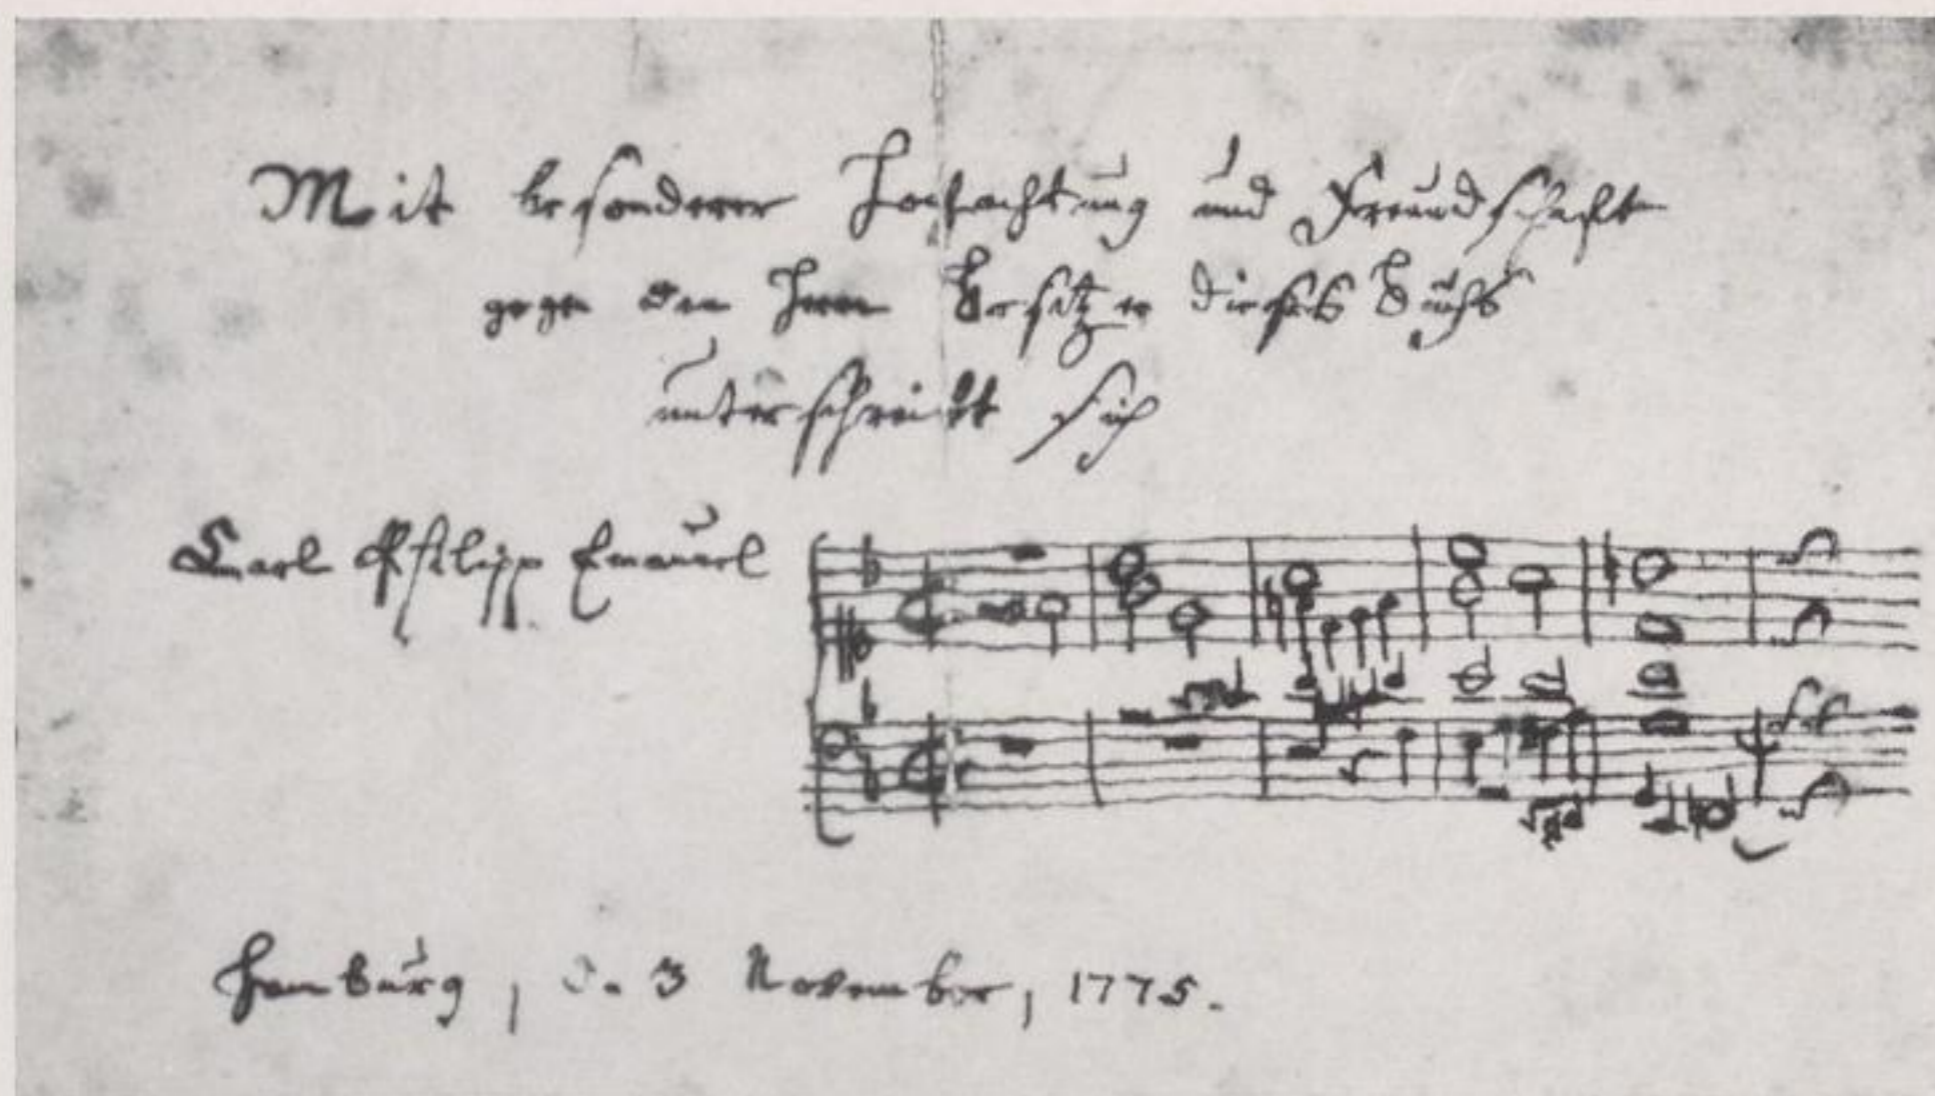 Mit besonderer Hochachtung und Freundschafft
gegen den Herrn Besitzer dieses Buchs
unterschreibt sich
Carl Philipp Emanuel
Hamburg, d. 3 November, 1775.